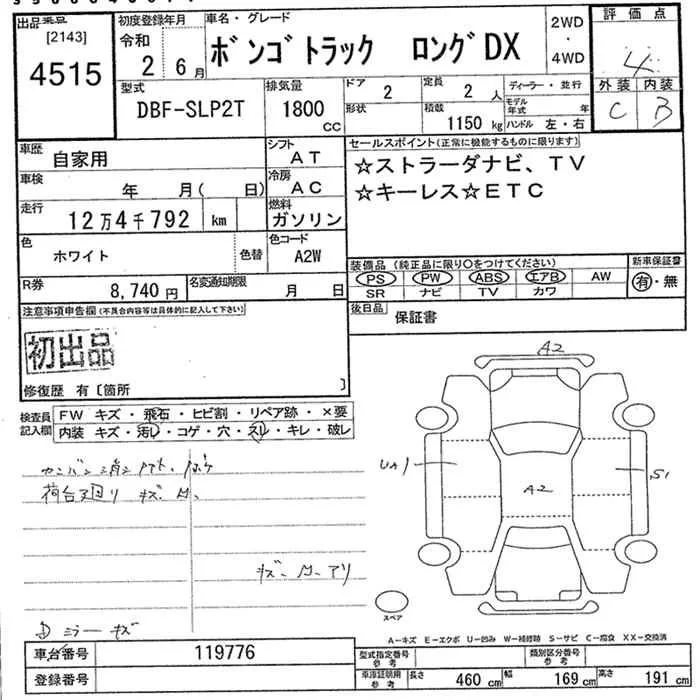 出品番号
[2143]
4515
初度登録年月
令和
2 6月
車名・グレード
ボンゴトラック ロングDX
2WD
・
4WD
評価点
4
外装 内装
C B
型式
DBF-SLP2T
排気量
1800
CC
ドア
2
定員
2 人
ディーラー・並行
形状
積載
1150 kg
モデル年式 年
ハンドル 左・右
車歴
自家用
シフト
AT
セールスポイント(正常に機能するものに限ります)
☆ストラーダナビ、TV
☆キーレス☆ETC
車検
年 月( 日)
冷房
AC
走行
12万4千792 km
燃料
ガソリン
色
ホワイト
色替
色コード
A2W
装備品(純正品に限り○をつけてください)
新車保証書
PS PW ABS エアB AW
SR ナビ TV カワ
有・無
R券
8,740円
名変通知期限
月 日
後日品
保証書
注意事項申告欄(不具合内容等は具体的に記入して下さい)
初出品
修復歴 有〔箇所 〕
検査員
記入欄
FW キズ・飛石・ヒビ割・リペア跡・×要
内装 キズ・汚レ・コゲ・穴・スレ・キレ・破レ
カンバン消シアト、ボケ
荷台廻リ キズ、
キズ
アリ
ミラーキズ
A2
UA1
A2
S1
スペア
A-キズ E-エクボ U-凹み W-補修跡 S-サビ C-腐食 XX-交換済
車台番号
119776
登録番号
型式指定番号
参考
類別区分番号
参考
車庫証明用
参考
長さ
460 cm
幅
169 cm
高さ
191 cm